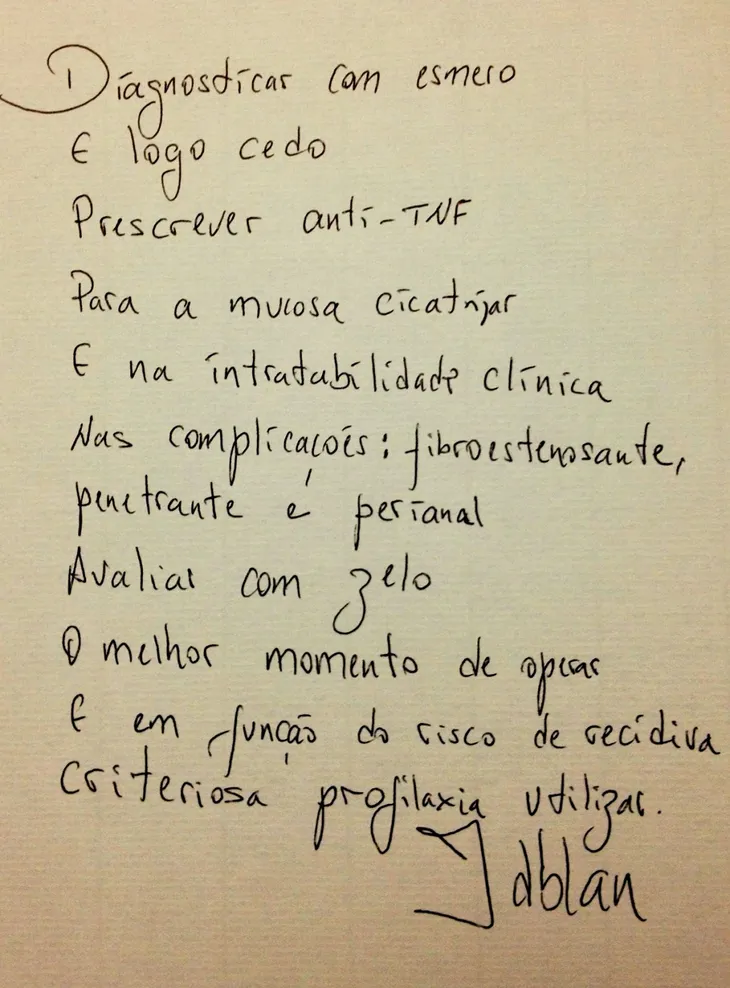 Diagnosticar com esmero
E logo cedo
Prescrever anti-TNF
Para a mucosa cicatrizar
E na intratabilidade clínica
Nas complicações: fibroestenosante,
penetrante e perianal
Avaliar com zelo
O melhor momento de operar
E em função do risco de recidiva
Criteriosa profilaxia utilizar.